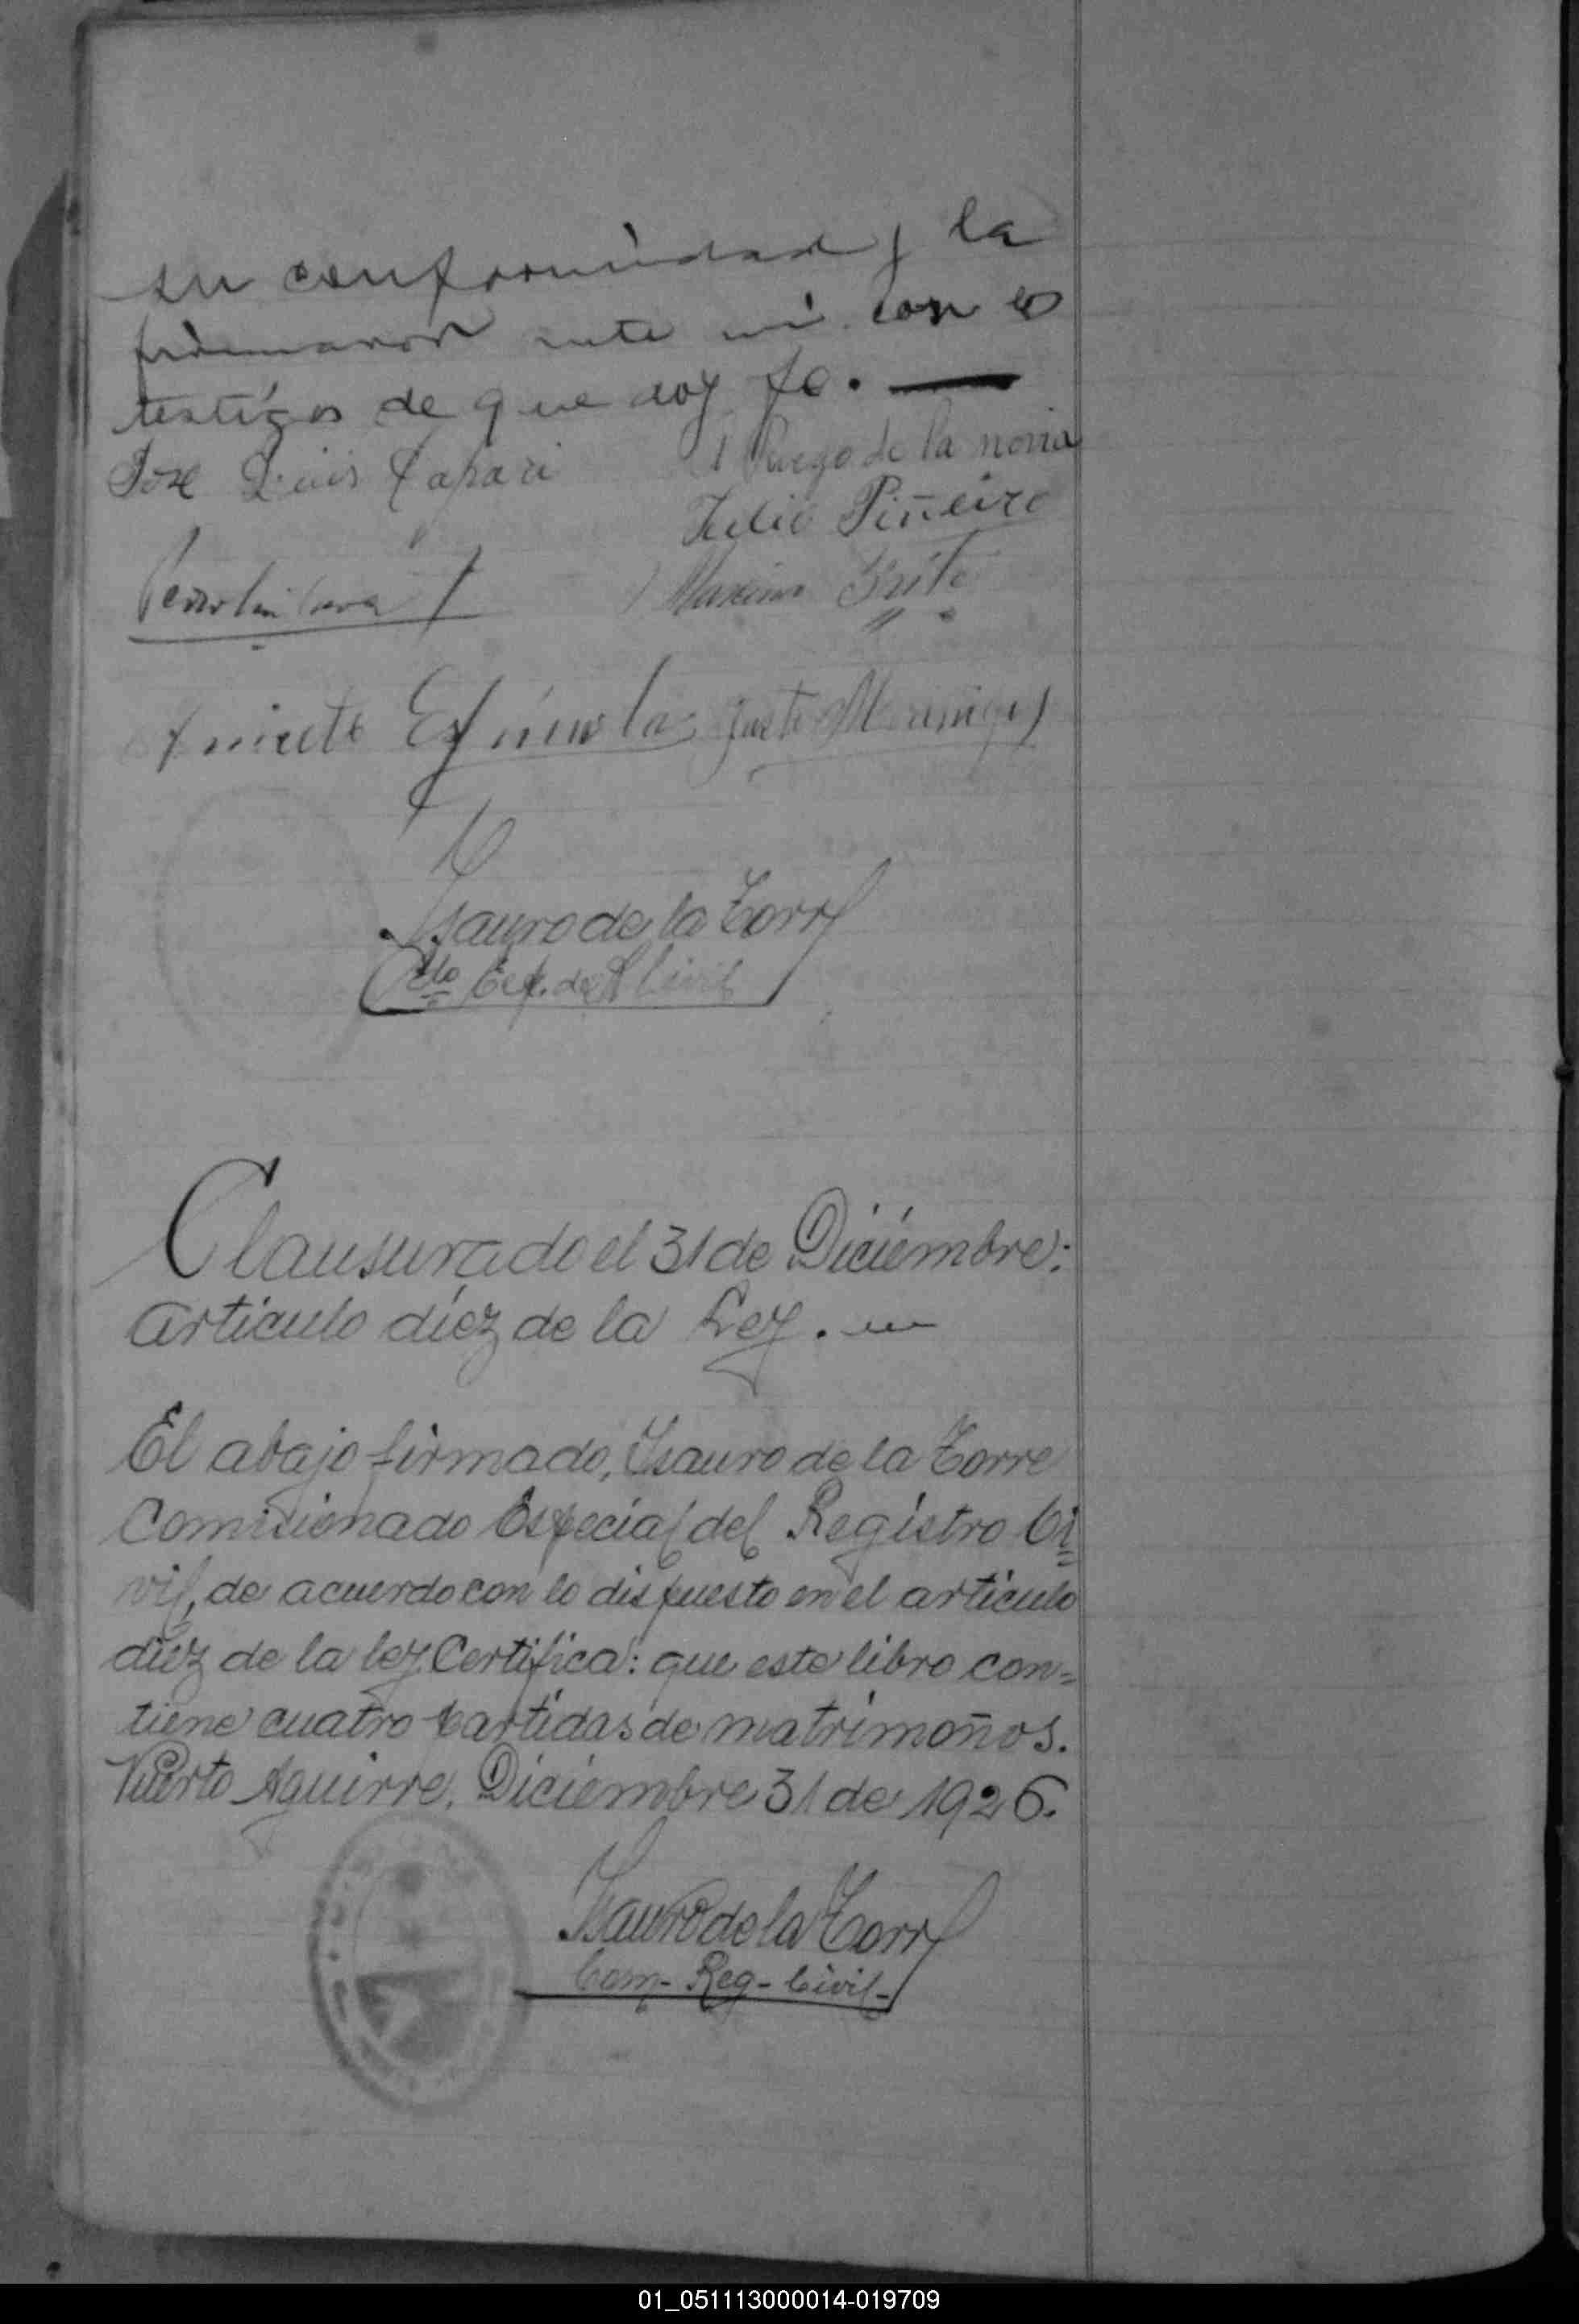 su conformidad y la
firmaron ante mi con los
testigos de que doy fe.
José Luis Capari
A Ruego de la novia
Julio Piñeiro
Maximo Brite
Espínola Justo
Isauro de la Torre
Civil
Clausurado el 31 de Diciembre:
articulo diez de la Ley.
El abajo firmado, Isauro de la Torre
Comisionado Especial del Registro Ci=
vil, de acuerdo con lo dispuesto en el articulo
diez de la ley Certifica: que este libro con=
tiene cuatro partidas de matrimoños.
Puerto Aguirre, Diciembre 31 de 1926.
Isauro de la Torre
Com- Reg- Civil-
01_051113000014-019709